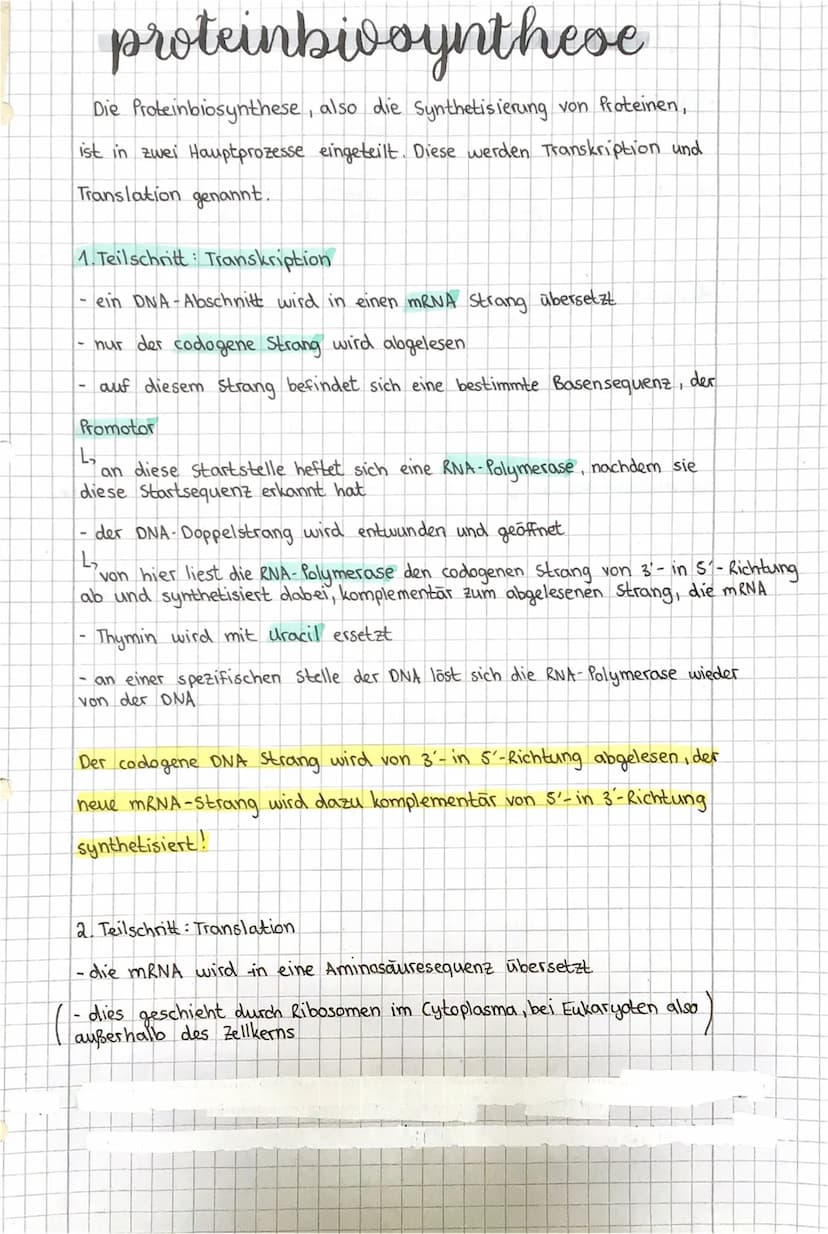 proteinbiosynthese
Die Proteinbiosynthese, also die Synthetisierung von Proteinen,
ist in zwei Hauptprozesse eingeteilt. Diese werden Transkription und
Translation genannt.
1. Teilschritt: Transkription
- ein DNA-Abschnitt wird in einen mRNA Strang übersetzt
- nur der codogene Strang wird abgelesen
- auf diesem Strang befindet sich eine bestimmte Basensequenz, der
Promotor
↳ an diese Startstelle heftet sich eine RNA-Polymerase, nachdem sie
diese Startsequenz erkannt hat
- der DNA-Doppelstrang wird entwunden und geöffnet
↳ von hier liest die RNA-Polymerase den codogenen Strang von 3'- in 5'-Richtung
ab und synthetisiert dabei, komplementär zum abgelesenen Strang, die mRNA
- Thymin wird mit Uracil ersetzt
- an einer spezifischen Stelle der DNA löst sich die RNA-Polymerase wieder
von der DNA
Der codogene DNA Strang wird von 3'- in 5'-Richtung abgelesen, der
neue mRNA-Strang wird dazu komplementär von 5'- in 3'-Richtung
synthetisiert!
2. Teilschritt: Translation
- die mRNA wird in eine Aminosäuresequenz übersetzt
(- dies geschieht durch Ribosomen im Cytoplasma, bei Eukaryoten also)
außerhalb des Zellkerns